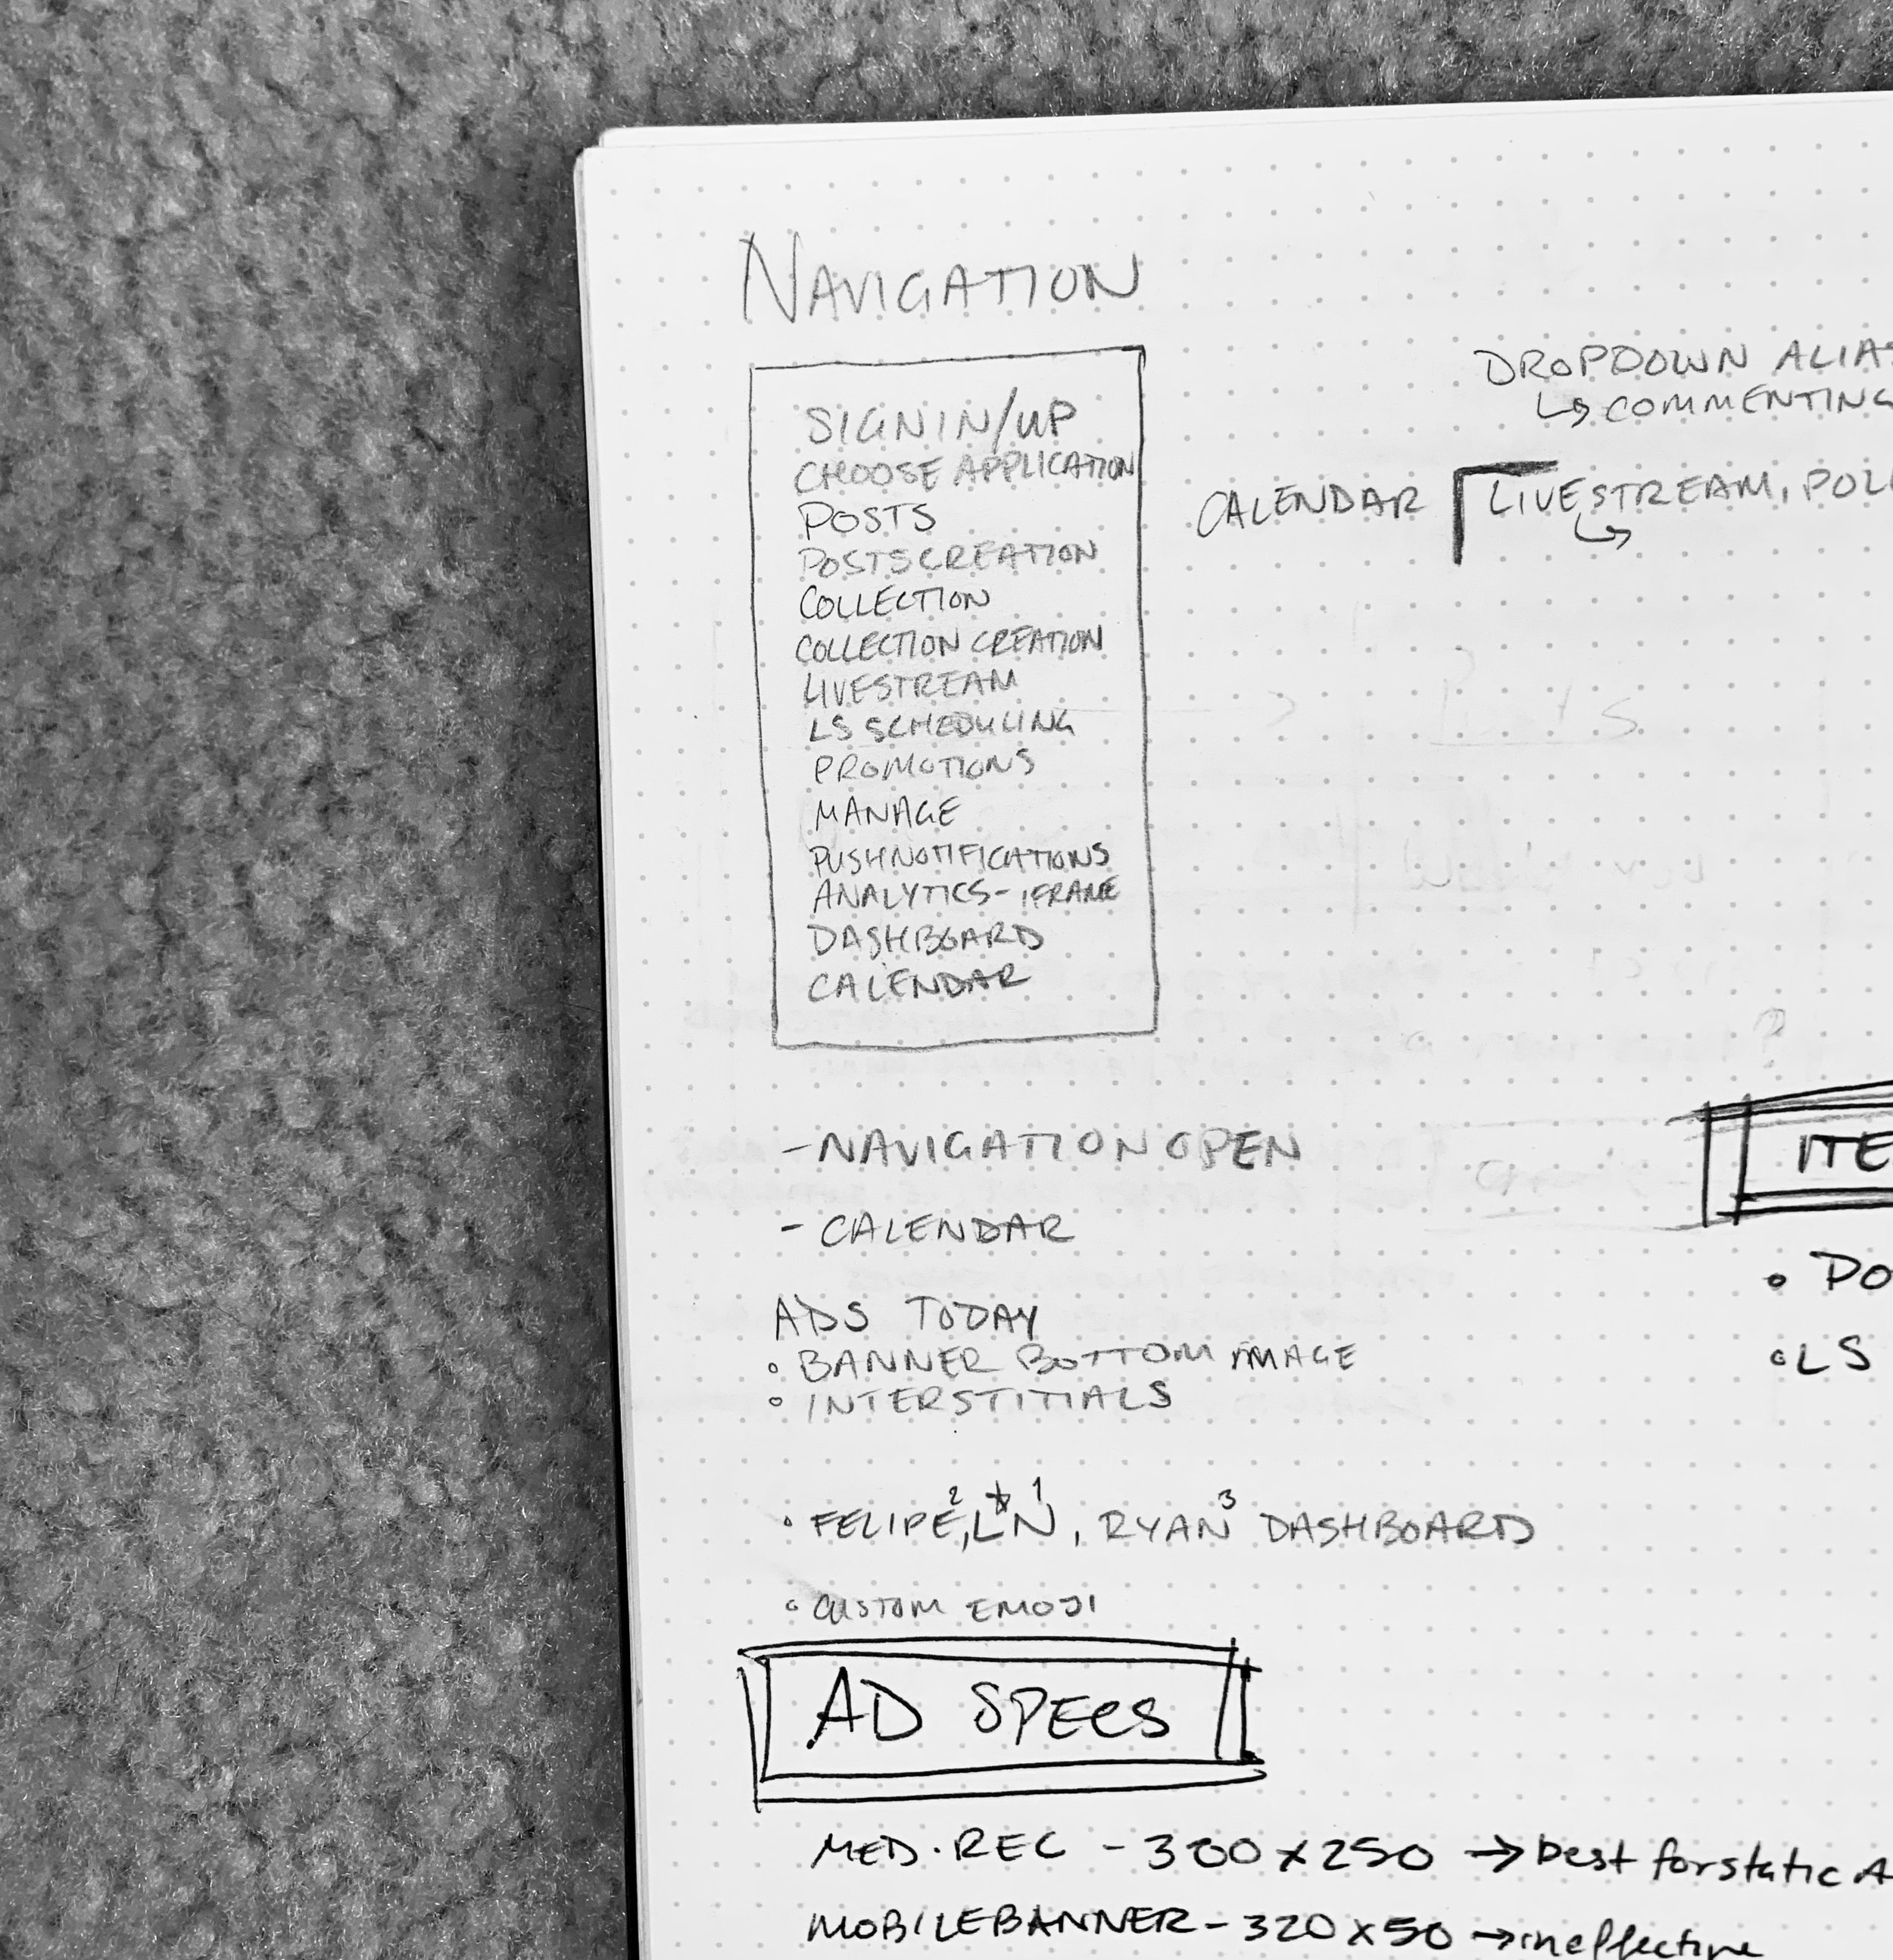 NAVIGATION
SIGN IN/UP
CHOOSE APPLICATION
POSTS
POSTS CREATION
COLLECTION
COLLECTION CREATION
LIVESTREAM
LS SCHEDULING
PROMOTIONS
MANAGE
PUSH NOTIFICATIONS
ANALYTICS - IFRAME
DASHBOARD
CALENDAR
DROPDOWN ALIAS
↳ COMMENTING
CALENDAR LIVESTREAM, POLL
- NAVIGATION OPEN
- CALENDAR
ADS TODAY
• BANNER BOTTOM IMAGE
• INTERSTITIALS
• FELIPE², LN¹, RYAN³ DASHBOARD
• CUSTOM EMOJI
ITE
• PO
• LS
AD SPECS
MED. REC - 300 x 250 → best for static A
MOBILE BANNER - 320 x 50 → ineffective